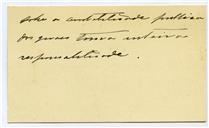 sobre a contabilidade publica
dos quaes tomo inteira
responsabilidade.